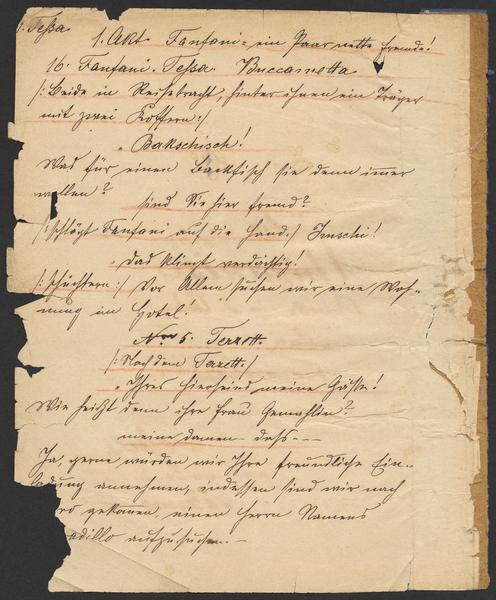 1. Tessa
1. Akt Fanfani = ein Paar nette Fremde!
16. Fanfani. Tessa. Buccametta
/: Beide in Reisetracht, hinter ihnen ein Träger
mit zwei Koffern :/
„ Bakschisch!
Was für einen Backfisch sie denn immer
wollen?
sind Sie hier fremd?
/: schlägt Fanfani auf die Hand :/ Imschi!
„ das klingt verdächtig!
/: schüchtern :/ Vor Allem suchen wir eine Woh-
nung im Hotel!
Nro 5. Terzett.
/: Nach dem Terzett :/
„ Ihres hierseind meine Gäste!
Wie heißt denn ihre Frau Gemahlin?
meine Damen – dass - - -
Ja, gerne würden wir Ihre freundliche Ein-
ladung annehmen, indessen sind wir nach
ro gekomen, einen Herrn Namens
adillo aufzusuchen. –